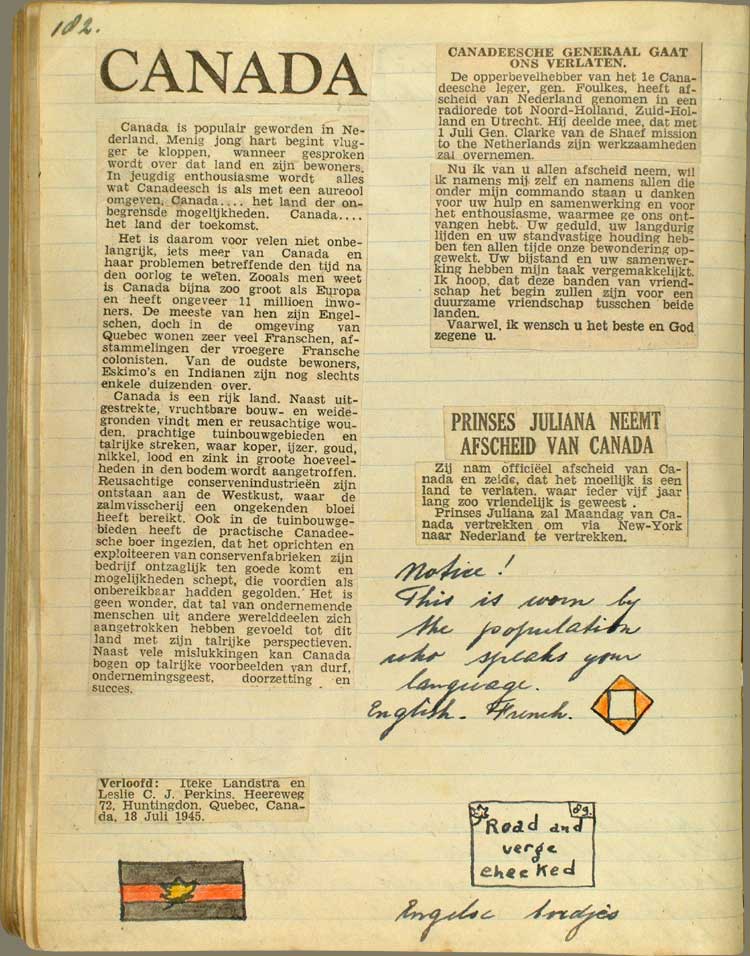 182.
CANADA
Canada is populair geworden in Ne-
derland. Menig jong hart begint vlug-
ger te kloppen, wanneer gesproken
wordt over dat land en zijn bewoners.
In jeugdig enthousiasme wordt alles
wat Canadeesch is als met een aureool
omgeven. Canada.... het land der on-
begrensde mogelijkheden. Canada....
het land der toekomst.
Het is daarom voor velen niet onbe-
langrijk, iets meer van Canada en
haar problemen betreffende den tijd na
den oorlog te weten. Zooals men weet
is Canada bijna zoo groot als Europa
en heeft ongeveer 11 millioen inwo-
ners. De meeste van hen zijn Engel-
schen, doch in de omgeving van
Quebec wonen zeer veel Franschen, af-
stammelingen der vroegere Fransche
colonisten. Van de oudste bewoners,
Eskimo's en Indianen zijn nog slechts
enkele duizenden over.
Canada is een rijk land. Naast uit-
gestrekte, vruchtbare bouw- en weide-
gronden vindt men er reusachtige wou-
den, prachtige tuinbouwgebieden en
talrijke streken, waar koper, ijzer, goud,
nikkel, lood en zink in groote hoeveel-
heden in den bodem wordt aangetroffen.
Reusachtige conservenindustrieën zijn
ontstaan aan de Westkust, waar de
zalmvisscherij een ongekenden bloei
heeft bereikt. Ook in de tuinbouwge-
bieden heeft de practische Canadee-
sche boer ingezien, dat het oprichten en
exploiteeren van conservenfabrieken zijn
bedrijf ontzaglijk ten goede komt en
mogelijkheden schept, die voordien als
onbereikbaar hadden gegolden. Het is
geen wonder, dat tal van ondernemende
menschen uit andere werelddeelen zich
aangetrokken hebben gevoeld tot dit
land met zijn talrijke perspectieven.
Naast vele mislukkingen kan Canada
bogen op talrijke voorbeelden van durf,
ondernemingsgeest, doorzetting en
succes.
Verloofd: Iteke Landstra en
Leslie C. J. Perkins. Heereweg
72, Huntingdon, Quebec, Cana-
da, 18 Juli 1945.
CANADEESCHE GENERAAL GAAT
ONS VERLATEN.
De opperbevelhebber van het 1e Cana-
deesche leger, gen. Foulkes, heeft af-
scheid van Nederland genomen in een
radiorede tot Noord-Holland, Zuid-Hol-
land en Utrecht. Hij deelde mee, dat met
1 Juli Gen. Clarke van de Shaef mission
to the Netherlands zijn werkzaamheden
zal overnemen.
Nu ik van u allen afscheid neem, wil
ik namens mij zelf en namens allen die
onder mijn commando staan u danken
voor uw hulp en samenwerking en voor
het enthousiasme, waarmee ge ons ont-
vangen hebt. Uw geduld, uw langdurig
lijden en uw standvastige houding heb-
ben ten allen tijde onze bewondering op-
gewekt. Uw bijstand en uw samenwer-
king hebben mijn taak vergemakkelijkt.
Ik hoop, dat deze banden van vriend-
schap het begin zullen zijn voor een
duurzame vriendschap tusschen beide
landen.
Vaarwel, ik wensch u het beste en God
zegene u.
PRINSES JULIANA NEEMT
AFSCHEID VAN CANADA
Zij nam officiëel afscheid van Ca-
nada en zeide, dat het moeilijk is een
land te verlaten, waar ieder vijf jaar
lang zoo vriendelijk is geweest.
Prinses Juliana zal Maandag van Ca-
nada vertrekken om via New-York
naar Nederland te vertrekken.
Notice!
This is worn by
the population
who speaks your
language.
English. French.
89.
Road and
verge
checked
Engelse bordjes